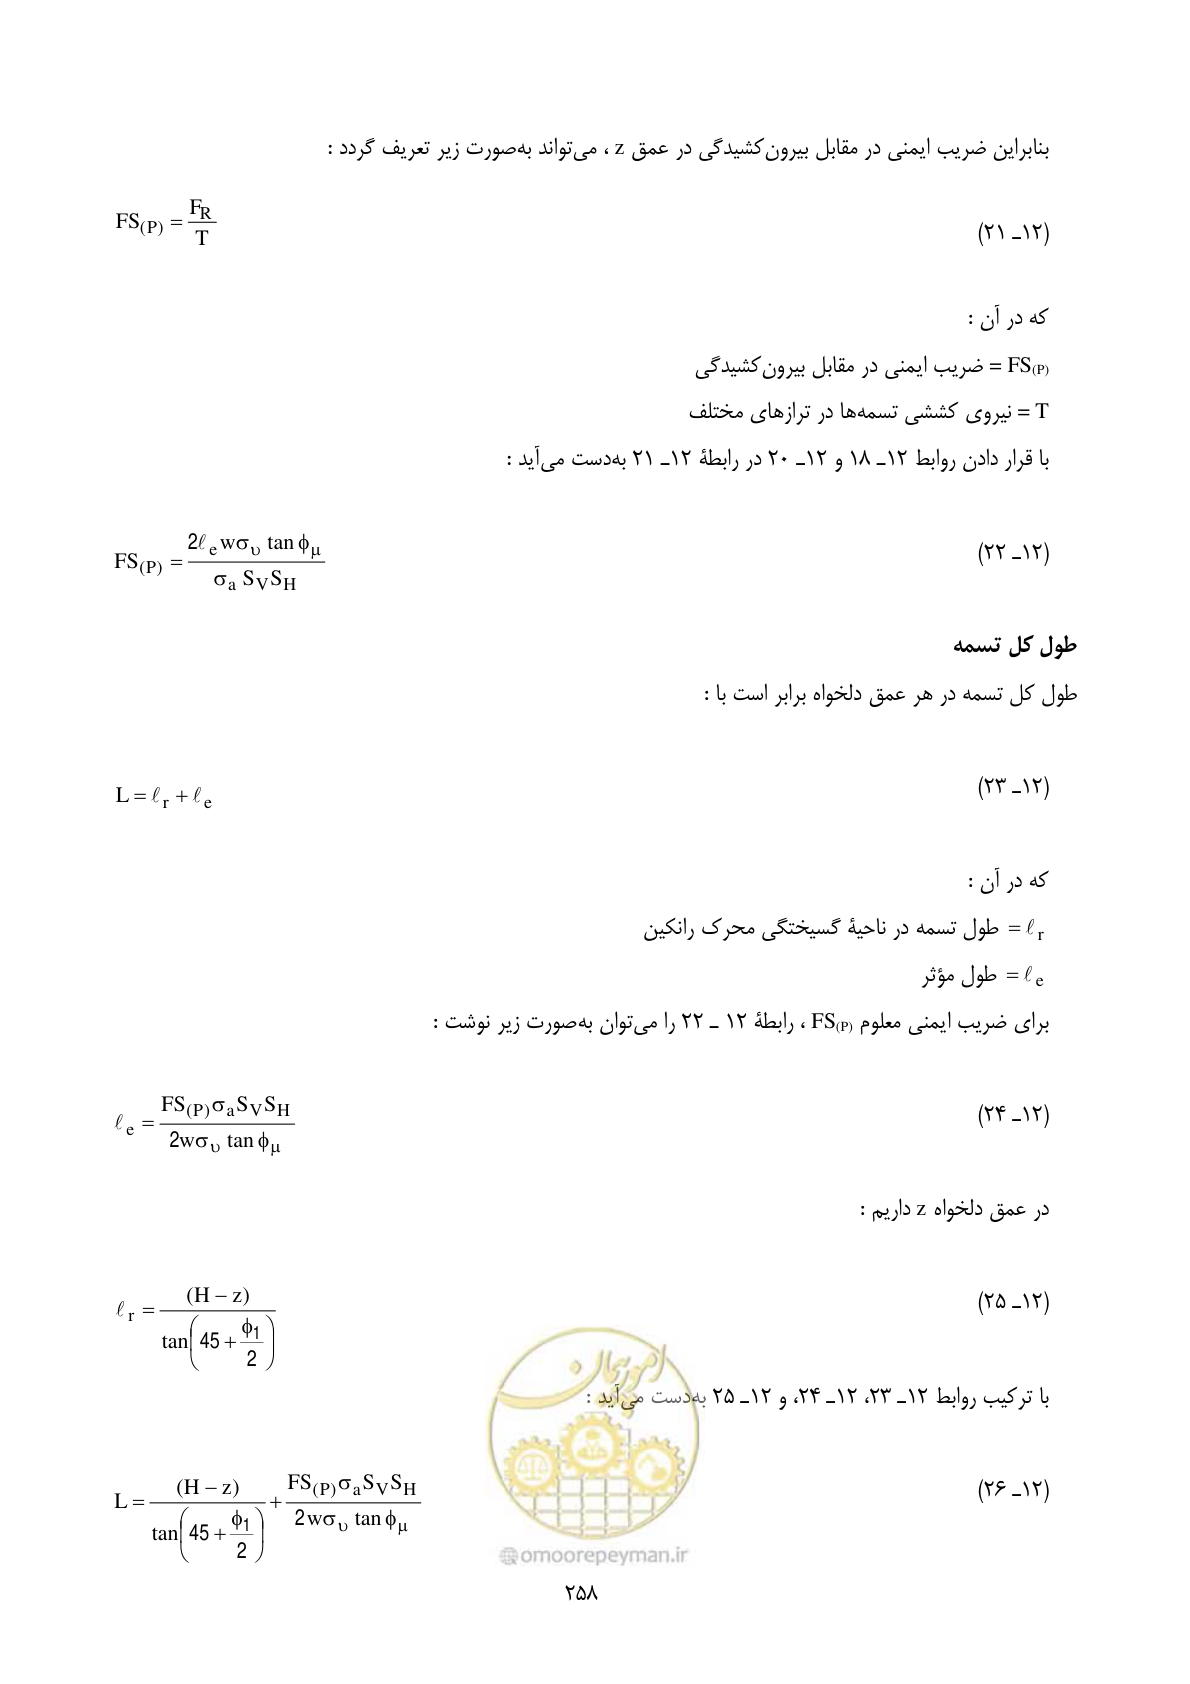 بنابراین ضریب ایمنی در مقابل بیرون‌کشیدگی در عمق z ، می‌تواند به‌صورت زیر تعریف گردد :
(۱۲ـ ۲۱) FS(P) = F_R / T
که در آن :
FS(P) = ضریب ایمنی در مقابل بیرون‌کشیدگی
T = نیروی کششی تسمه‌ها در ترازهای مختلف
با قرار دادن روابط ۱۲ـ ۱۸ و ۱۲ـ ۲۰ در رابطۀ ۱۲ـ ۲۱ به‌دست می‌آید :
(۱۲ـ ۲۲) FS(P) = 2ℓ_e wσ_υ tan ϕ_μ / σ_a S_V S_H
طول کل تسمه
طول کل تسمه در هر عمق دلخواه برابر است با :
(۱۲ـ ۲۳) L = ℓ_r + ℓ_e
که در آن :
ℓ_r = طول تسمه در ناحیۀ گسیختگی محرک رانکین
ℓ_e = طول مؤثر
برای ضریب ایمنی معلوم FS(P) ، رابطۀ ۱۲ ـ ۲۲ را می‌توان به‌صورت زیر نوشت :
(۱۲ـ ۲۴) ℓ_e = FS(P) σ_a S_V S_H / 2wσ_υ tan ϕ_μ
در عمق دلخواه z داریم :
(۱۲ـ ۲۵) ℓ_r = (H − z) / tan(45 + ϕ_1 / 2)
با ترکیب روابط ۱۲ـ ۲۳، ۱۲ـ ۲۴، و ۱۲ـ ۲۵ به‌دست می‌آید :
(۱۲ـ ۲۶) L = (H − z) / tan(45 + ϕ_1 / 2) + FS(P) σ_a S_V S_H / 2wσ_υ tan ϕ_μ
امور پیمان
@omoorepeyman.ir
۲۵۸